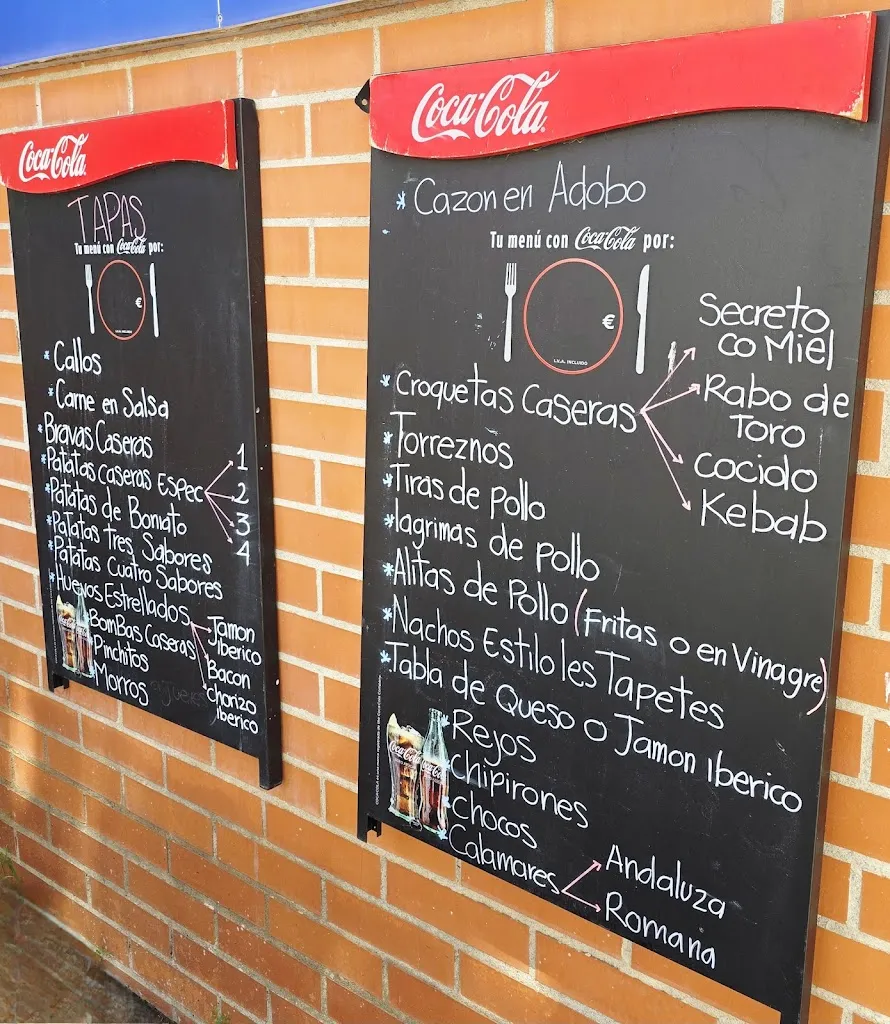 Coca-Cola
TAPAS
Tu menú con Coca-Cola por:
€
I.V.A. INCLUIDO
* Callos
* Carne en Salsa
* Bravas Caseras
* Patatas caseras Espec
1
2
3
4
* Patatas de Boniato
* Patatas Tres Sabores
* Patatas Cuatro Sabores
* Huevos Estrellados
Jamon
Iberico
Bacon
Chorizo
Iberico
BomBas Caseras
Pinchitos
Morros
Coca-Cola
* Cazon en Adobo
Tu menú con Coca-Cola por:
€
I.V.A. INCLUIDO
* Croquetas Caseras
Secreto
co Miel
Rabo de
Toro
cocido
Kebab
* Torreznos
* Tiras de pollo
* lagrimas de pollo
* Alitas de Pollo (Fritas o en Vinagre)
* Nachos Estilo les Tapetes
* Tabla de Queso o Jamon Iberico
* Rejos
* chipirones
* chocos
* Calamares
Andaluza
Romana
Coca-Cola